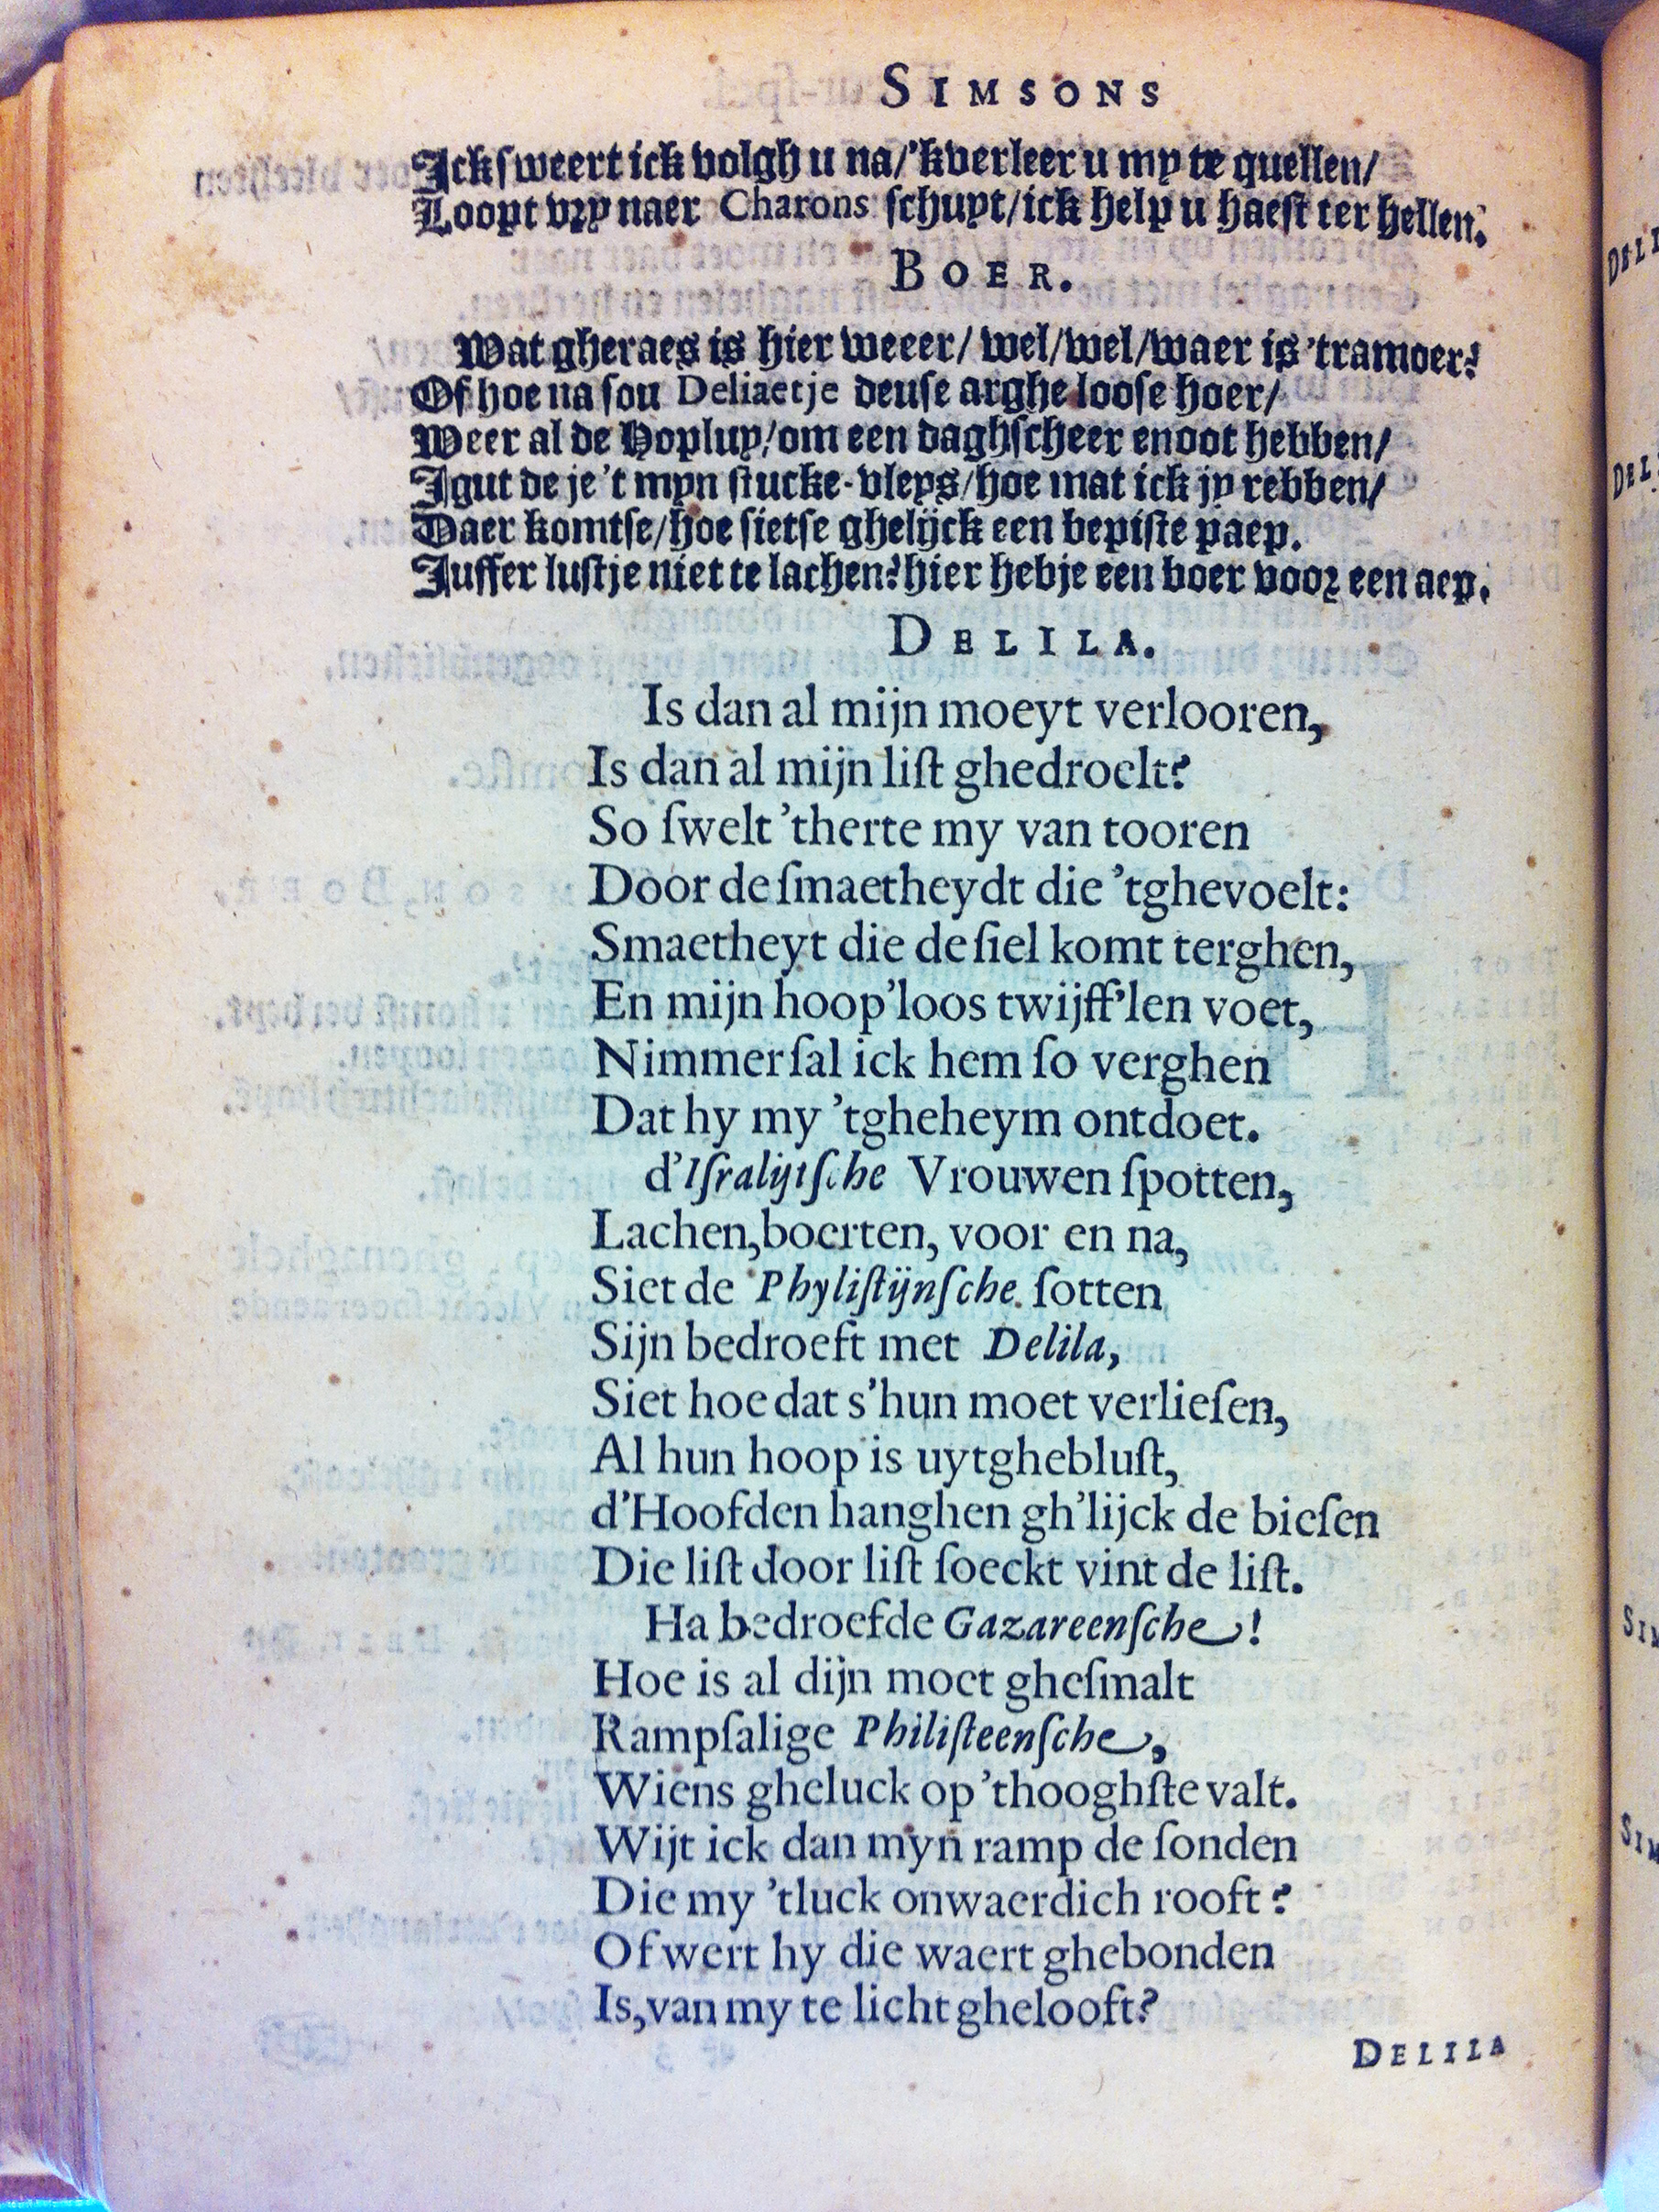 SIMSONS
Ick sweert ick volgh u na/'kverleer u my te quellen/
Loopt vry naer Charons schuyt/ick help u haest ter hellen.
BOER.
Wat gheraes is hier weeer/ wel/wel/waer is 'tramoer?
Of hoe na sou Deliaetje deuse arghe loose hoer/
Weer al de Hopluy/om een daghscheer enoot hebben/
Igut de je 't myn stucke-vleys/hoe mat ick jy rebben/
Daer komtse/hoe sietse ghelijck een bepiste paep.
Juffer lustje niet te lachen? hier hebje een boer voor een aep.
DELILA.
Is dan al mijn moeyt verlooren,
Is dan al mijn liſt ghedroelt?
So ſwelt 'therte my van tooren
Door de ſmaetheydt die 'tghevoelt:
Smaetheyt die de ſiel komt terghen,
En mijn hoop'loos twijff'len voet,
Nimmer ſal ick hem ſo verghen
Dat hy my 'tgheheym ontdoet.
d'Iſralijtſche Vrouwen ſpotten,
Lachen,boerten, voor en na,
Siet de Phyliſtijnſche ſotten
Sijn bedroeft met Delila,
Siet hoe dat s'hun moet verlieſen,
Al hun hoop is uytghebluſt,
d'Hoofden hanghen gh'lijck de bieſen
Die liſt door liſt ſoeckt vint de liſt.
Ha bedroefde Gazareenſche!
Hoe is al dijn moet gheſmalt
Rampſalige Philiſteenſche,
Wiens gheluck op 'thooghſte valt.
Wijt ick dan myn ramp de ſonden
Die my 'tluck onwaerdich rooft?
Of wert hy die waert ghebonden
Is,van my te licht ghelooft?
DELILA